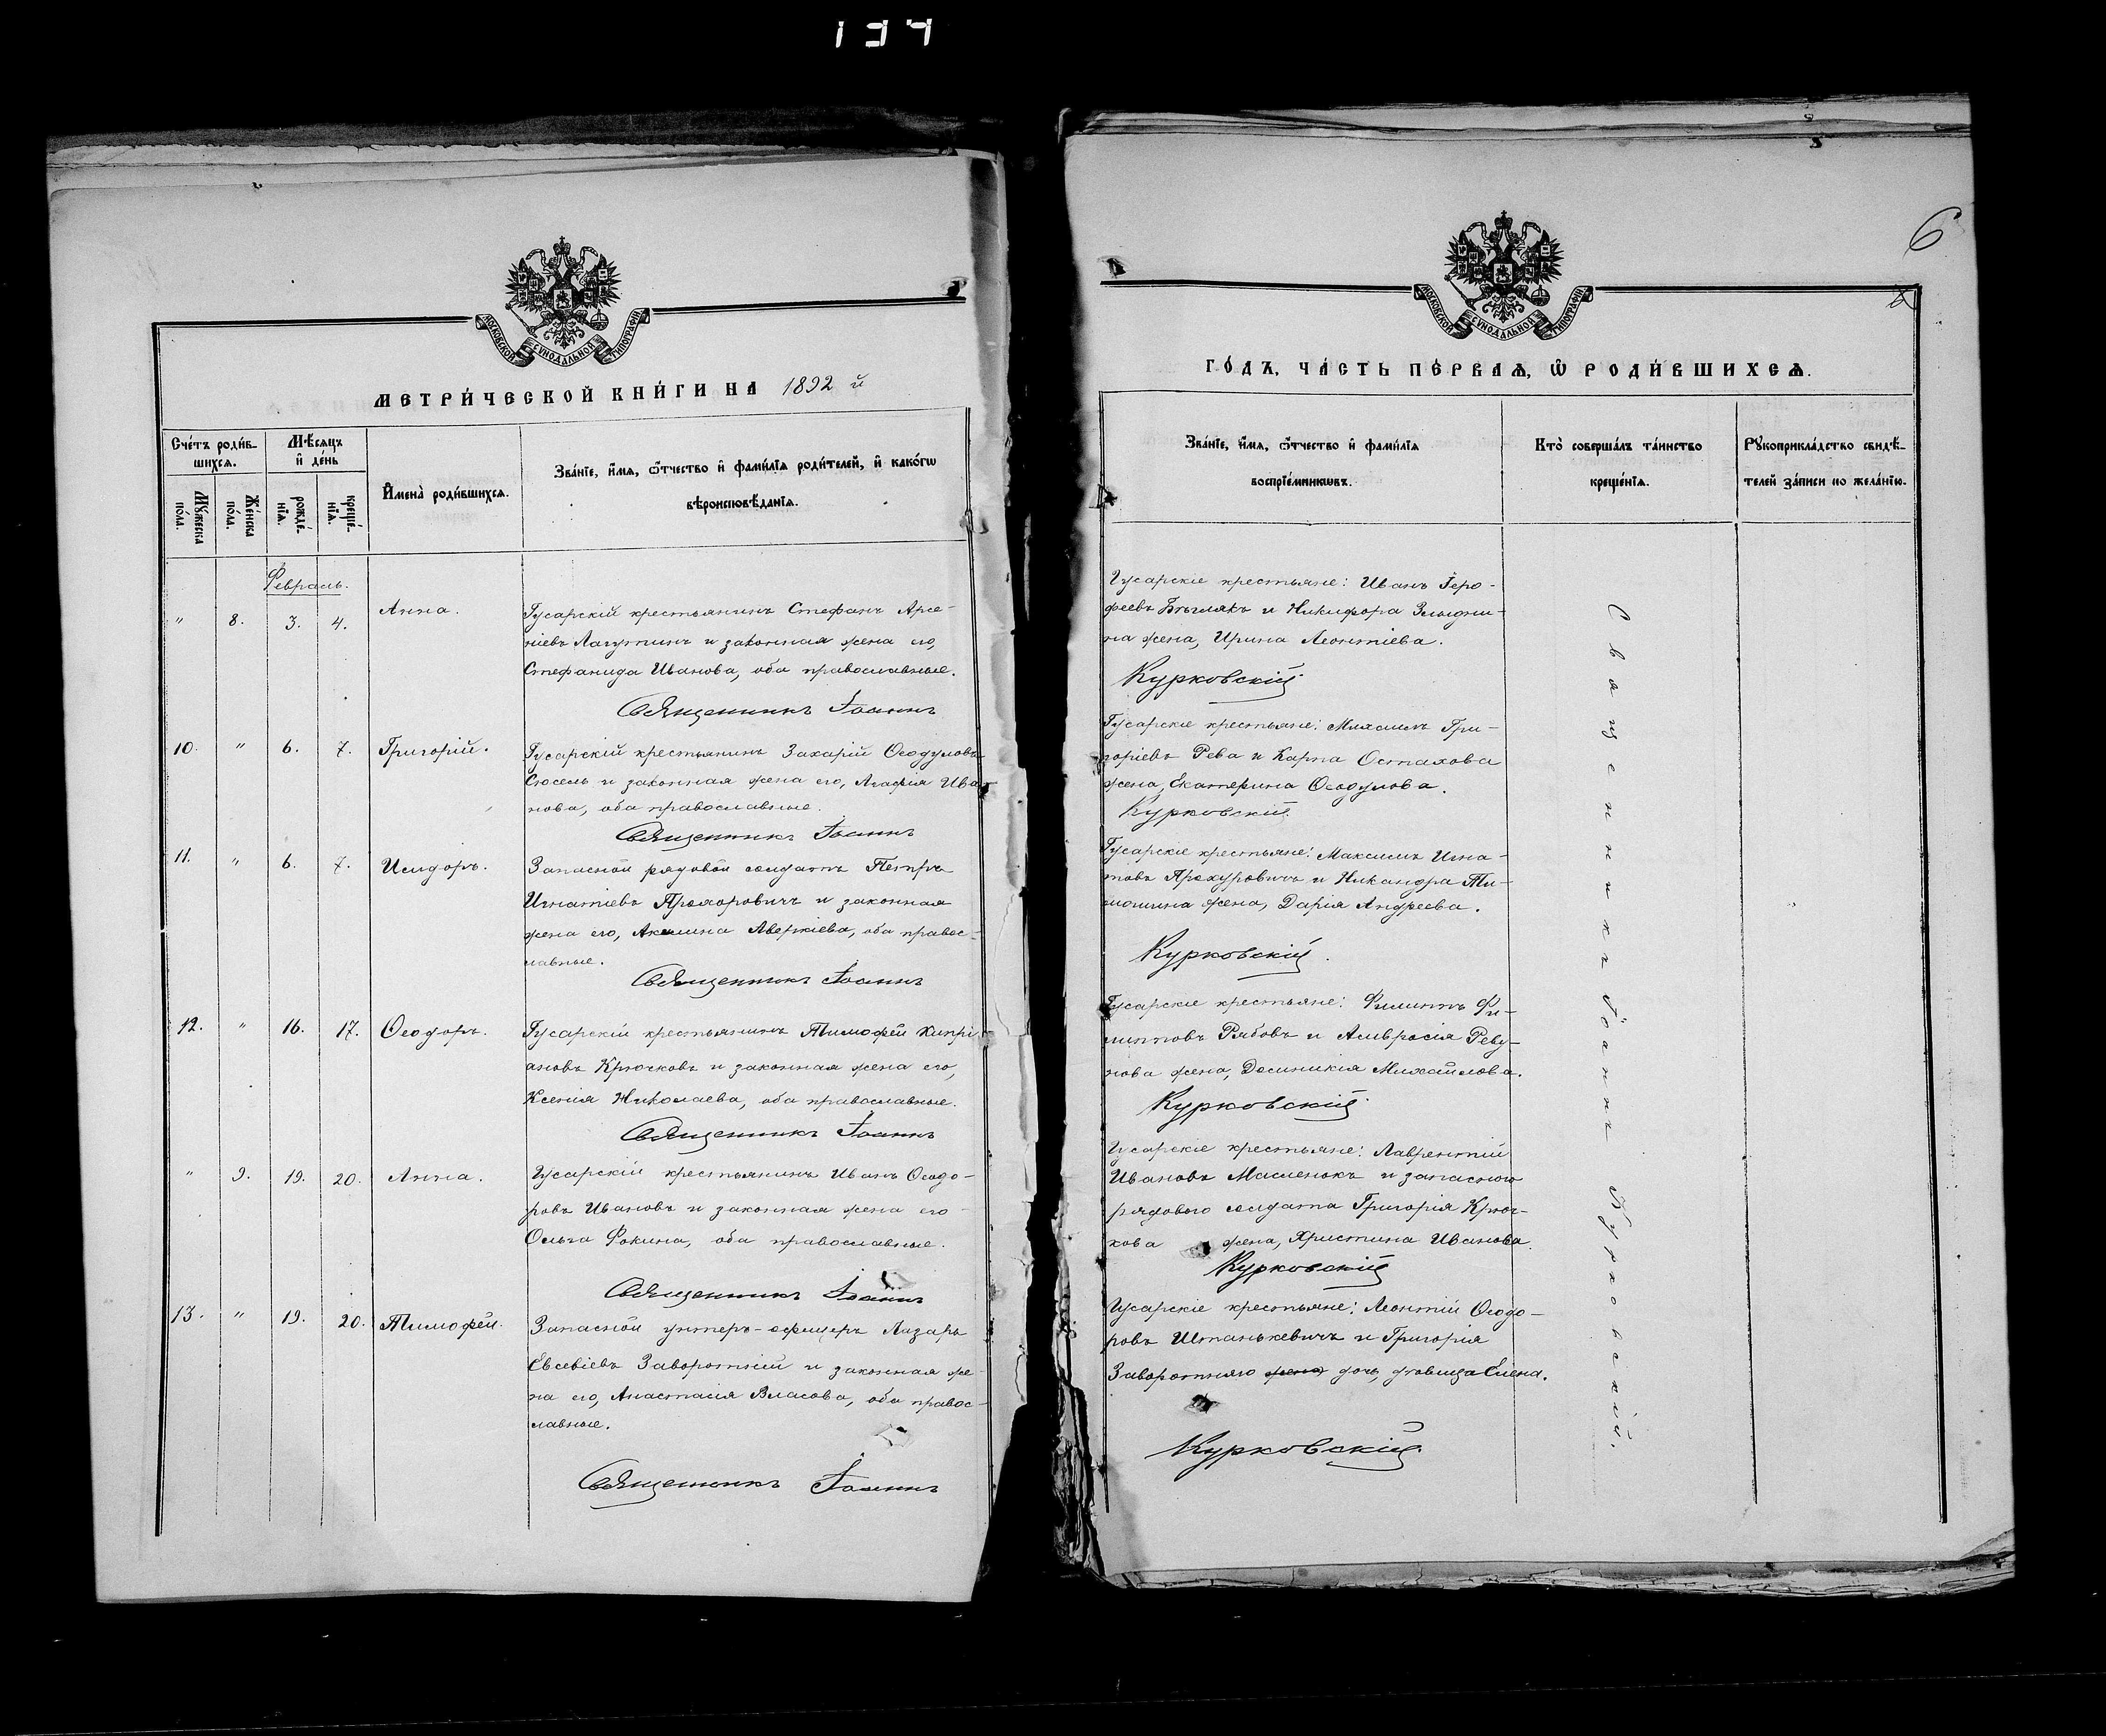 134
6
МОСКОВСКОЙ СѴНОДАЛЬНОЙ ТИПОГРАФІИ
МЕТРИ́ЧЕСКОЙ КНИ́ГИ НА 1892 й
Сче́тъ роди́в-
шихсѧ.
Мꙋ́жеска
по́ла.
Же́нска
по́ла.
Мѣ́сѧцъ
и҆ де́нь
рожде́-
нїѧ.
креще́-
нїѧ.
И҆мена̀ роди́вшихсѧ.
Зва́нїе, и҆́мѧ, ѻ҆́тчество и҆ фами́лїѧ роди́телей, и҆ како́гѡ
вѣроисповѣ́данїѧ.
Февраль.
" 8. 3. 4. Анна.
Гусарскій крестьянинъ Стефанъ Арсе-
ніевъ Лагутинъ и законная жена его,
Стефанида Иванова, оба православные.
Священникъ Іоаннъ
10. " 6. 7. Григорій.
Гусарскій крестьянинъ Захарій Ѳеодуловъ
Сюсель и законная жена его, Агафія Ива
нова, оба православные.
Священникъ Іоаннъ
11. " 6. 7. Исидоръ.
Запасной рядовой солдатъ Петръ
Игнатіевъ Прохоровичъ и законная
жена его, Акилина Аверкіева, оба правос-
лавные.
Священникъ Іоаннъ
12. " 16. 17. Ѳеодоръ.
Гусарскій крестьянинъ Тимофей Кипрі
ановъ Крючковъ и законная жена его,
Ксенія Николаева, оба православные.
Священникъ Іоаннъ
" 9. 19. 20. Анна.
Гусарскій крестьянинъ Иванъ Ѳеодо-
ровъ Ивановъ и законная жена его
Ольга Фокина, оба православные.
Священникъ Іоаннъ
13. " 19. 20. Тимофей.
Запасной унтеръ-офицеръ Лазарь
Евсевіевъ Заворотній и законная же-
на его, Анастасія Власова, оба правос-
лавные.
Священникъ Іоаннъ
МОСКОВСКОЙ СѴНОДАЛЬНОЙ ТИПОГРАФІИ
ГО́ДЪ, ЧА́СТЬ ПЕ́РВАѦ, Ѽ РОДИ́ВШИХСѦ.
Зва́нїе, и҆́мѧ, ѻ҆́тчество и҆ фами́лїѧ
воспрїе́мникѡвъ.
Кто̀ соверша́лъ та́инство
креще́нїѧ.
Рꙋкоприкла́дство свидѣ́-
телей за́писи по жела́нїю.
Гусарскіе крестьяне: Иванъ Геро-
феевъ и Никифора
на жена, Ирина Леонтіева.
Курковскій
Гусарскіе крестьяне: Михаилъ Гри-
горіевъ Рева и Карпа Остахова
жена, Екатерина Ѳеодулова.
Курковскій
Гусарскіе крестьяне: Максимъ Игна-
товъ и Никандра Ти-
мошина жена, Дарія Андреева.
Курковскій
Гусарскіе крестьяне: Филиппъ Фи-
липповъ Рябовъ и Амвросія Реву-
нова жена, Домникія Михайлова.
Курковскій
Гусарскіе крестьяне: Лаврентій
Ивановъ Масленокъ и запасного
рядового солдата Григорія Крюч-
кова жена, Христина Иванова.
Курковскій
Гусарскіе крестьяне: Леонтій Ѳеодо-
ровъ Штанькевичъ и Григорія
Заворотняго жена дочь, дѣвица Елена.
Курковскій
Священникъ Іоаннъ Курковскій.